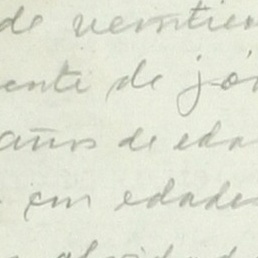 de veintien
ente de jó
años de eda
con edades